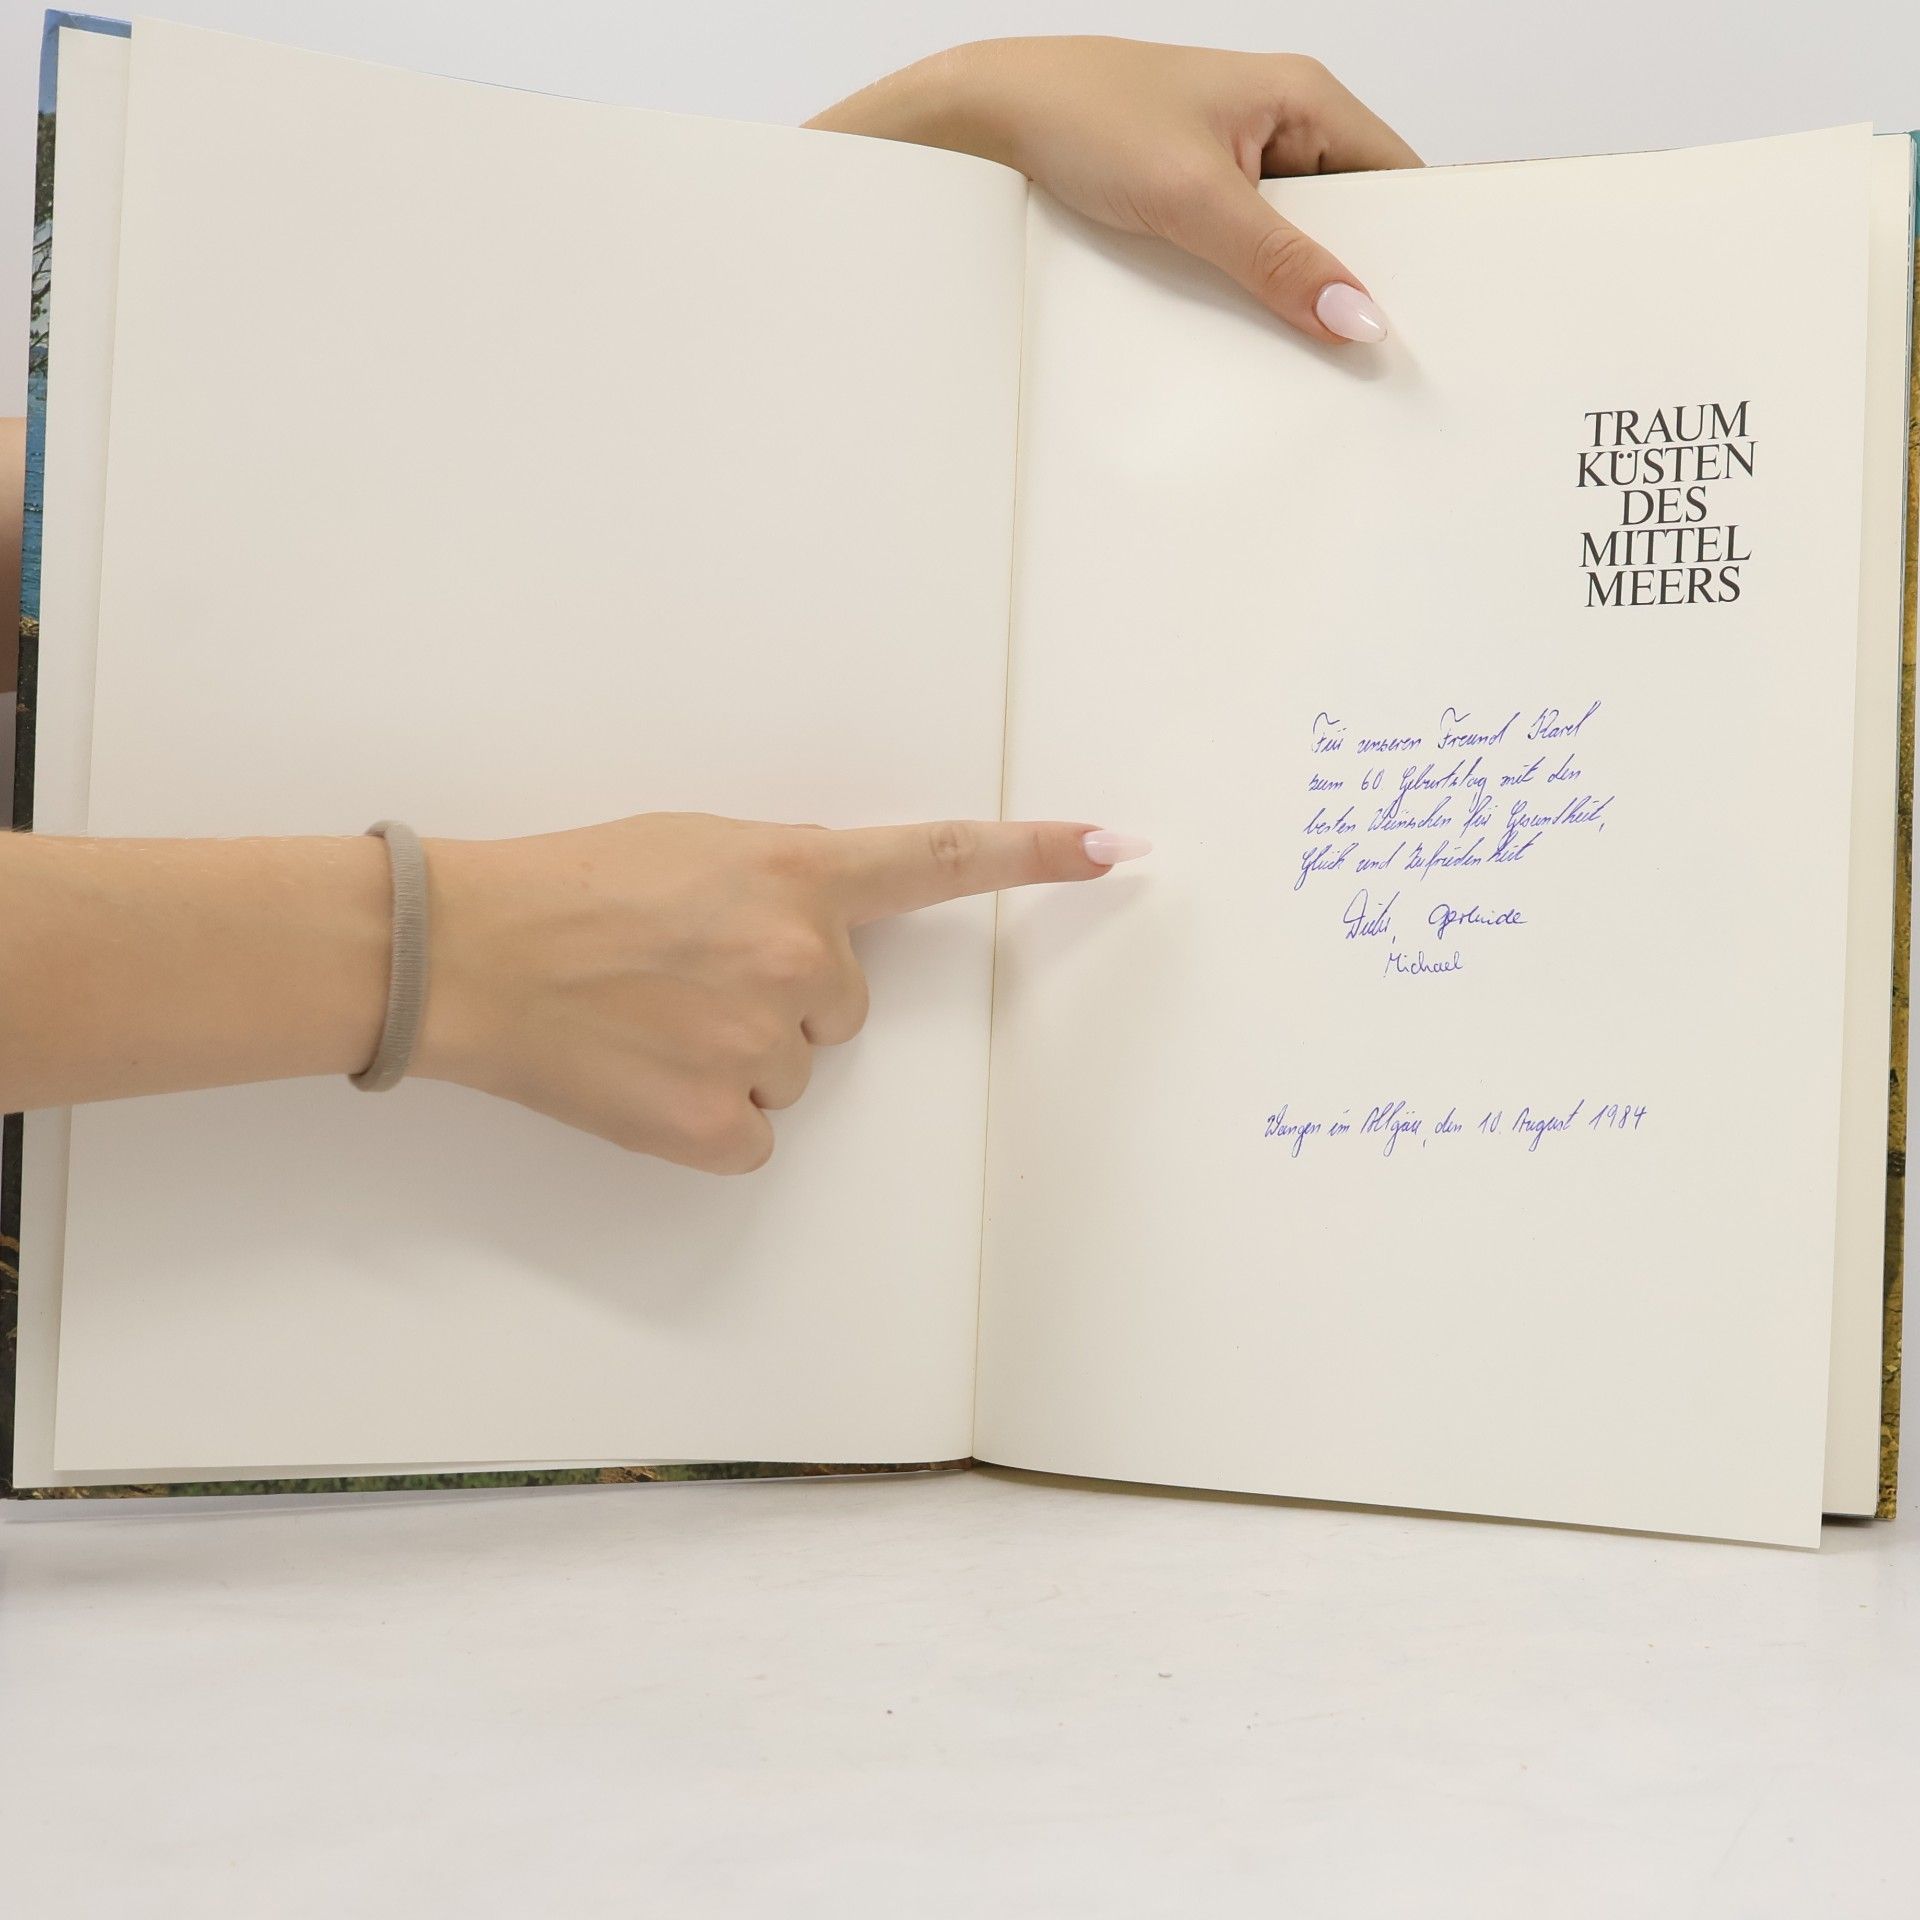 TRAUM
KÜSTEN
DES
MITTEL
MEERS
Für unseren Freund Karel
zum 60. Geburtstag mit den
besten Wünschen für Gesundheit,
Glück und Zufriedenheit
Dieter, Gerlinde
Michael
Wangen im Allgäu, den 10. August 1984